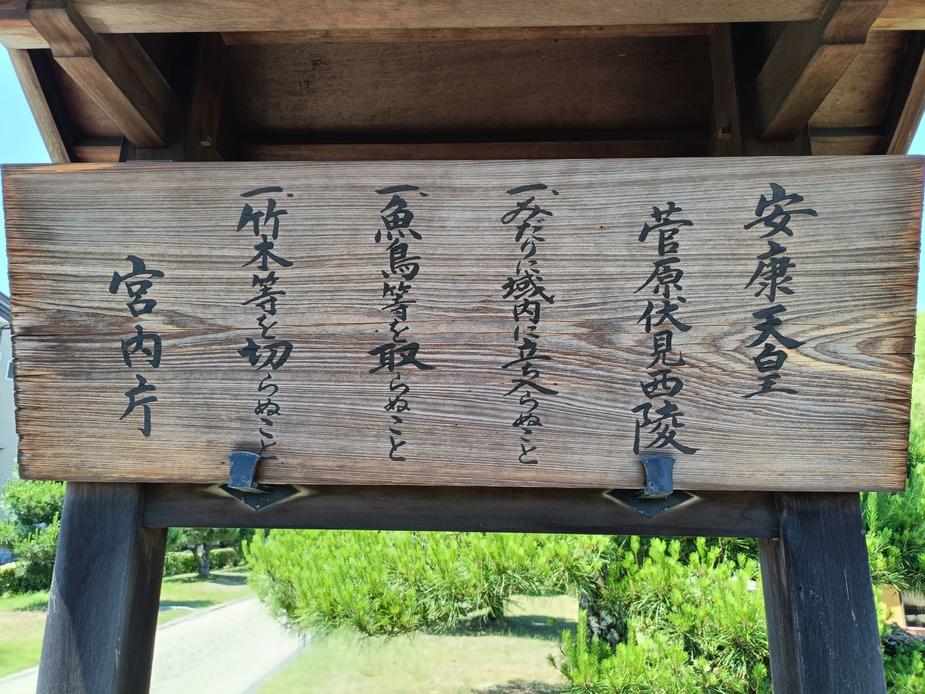 安康天皇
菅原伏見西陵
一、みだりに域内に立ち入らぬこと
一、魚鳥等を取らぬこと
一、竹木等を切らぬこと
宮内庁